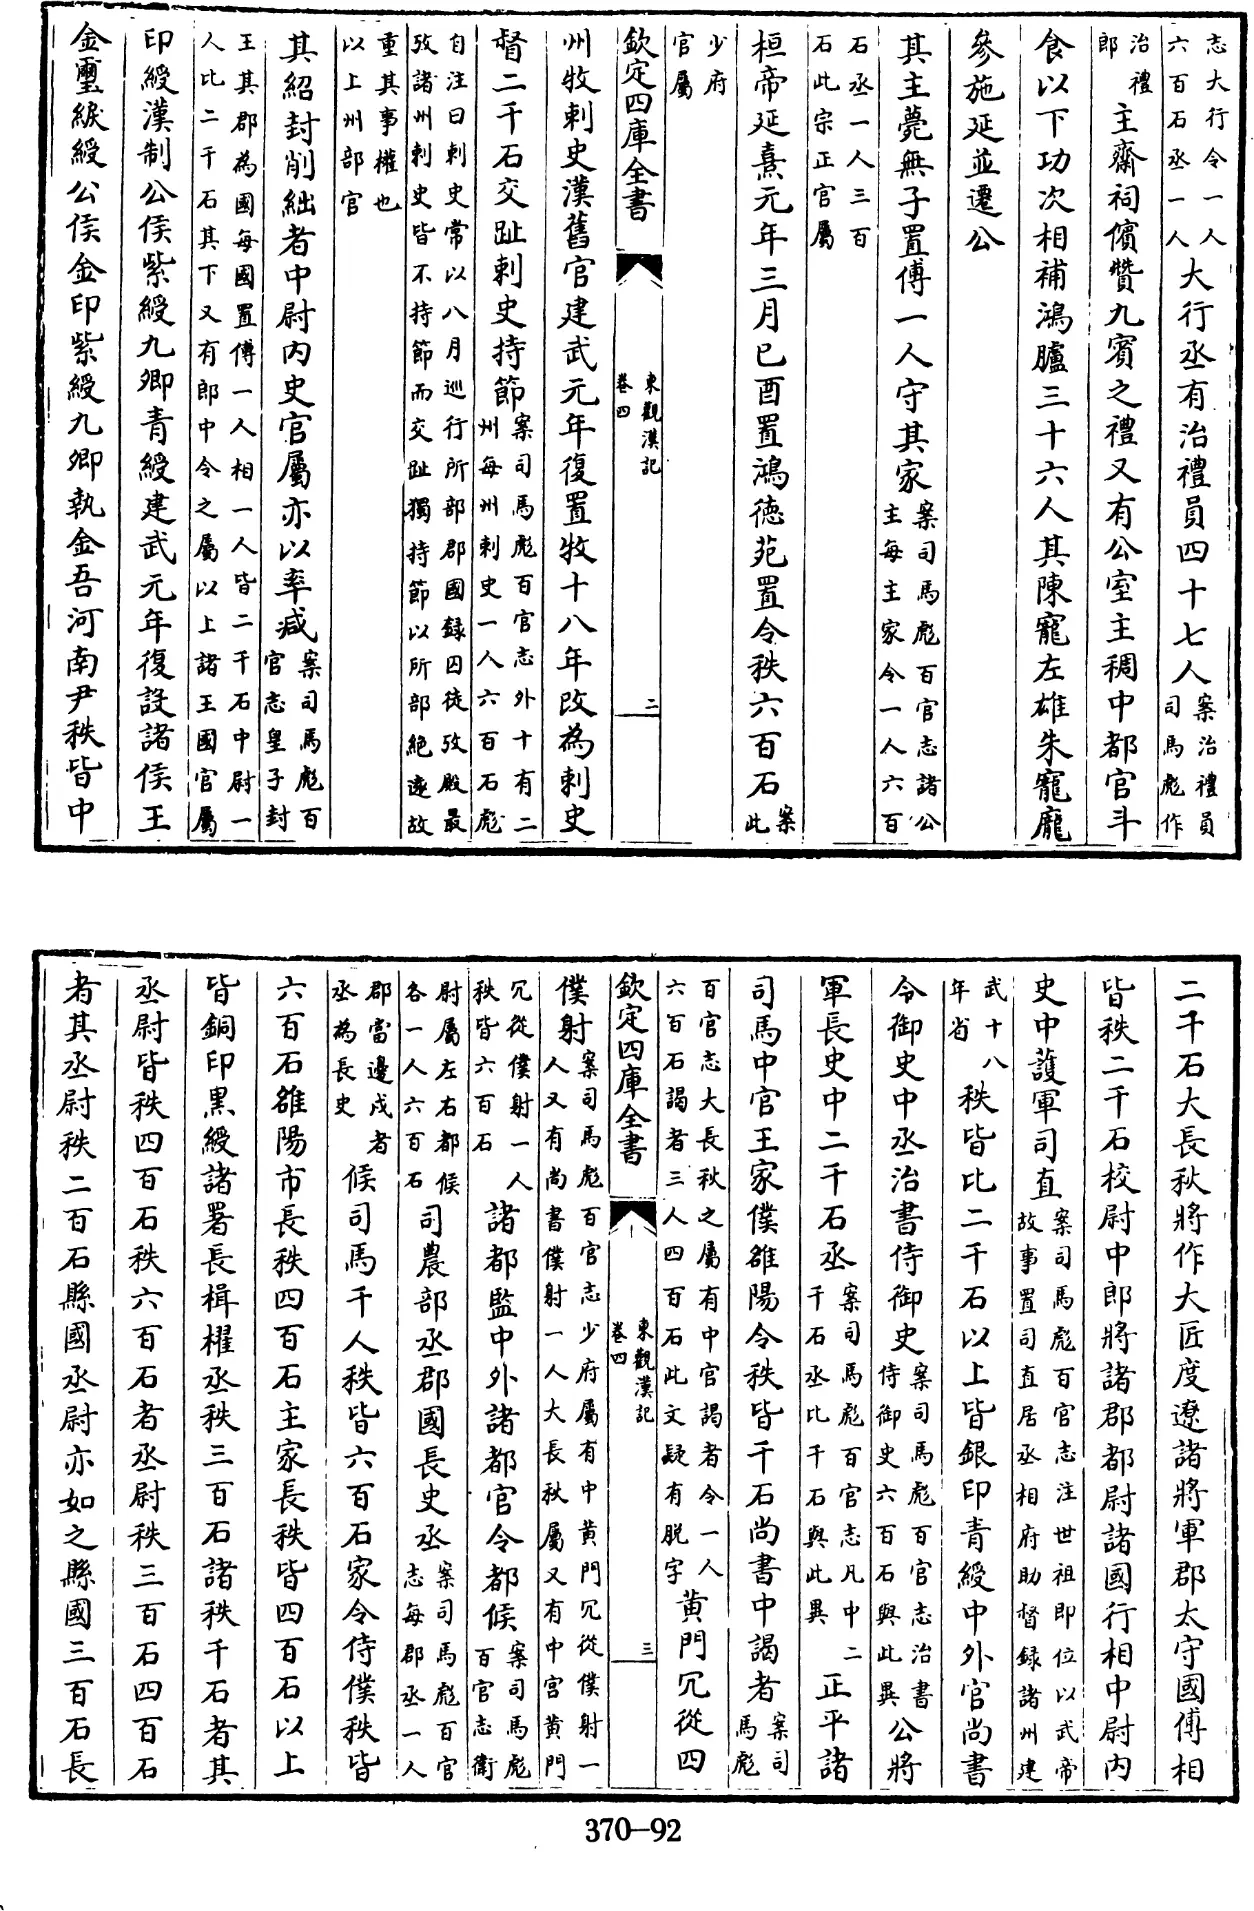 志大行令一人六百石丞一人大行丞有治禮員四十七人案治禮員司馬彪作
治禮郎主齋祠儐贊九賓之禮又有公室主稠中都官斗
食以下功次相補鴻臚三十六人其陳寵左雄朱寵龐
參施延並遷公
其主薨無子置傅一人守其家案司馬彪百官志諸公主每主家令一人六百
石丞一人三百石此宗正官屬
桓帝延熹元年三月已酉置鴻德苑置令秩六百石案此
少府官屬
欽定四庫全書 東觀漢記卷四 二
州牧刺史漢舊官建武元年復置牧十八年改為刺史
督二千石交趾刺史持節案司馬彪百官志外十有二州每州刺史一人六百石彪
自注曰刺史常以八月巡行所部郡國録囚徒攷殿最攷諸州刺史皆不持節而交趾獨持節以所部絶遠故
重其事權也以上州部官
其紹封削絀者中尉內史官屬亦以率減案司馬彪百官志皇子封
王其郡為國每國置傅一人相一人皆二千石中尉一人比二千石其下又有郎中令之屬以上諸王國官屬
印綬漢制公侯紫綬九卿青綬建武元年復設諸侯王
金璽綟綬公侯金印紫綬九卿執金吾河南尹秩皆中
二千石大長秋將作大匠度遼諸將軍郡太守國傅相
皆秩二千石校尉中郎將諸郡都尉諸國行相中尉內
史中護軍司直案司馬彪百官志注世祖即位以武帝故事置司直居丞相府助督録諸州建
武十八年省秩皆比二千石以上皆銀印青綬中外官尚書
令御史中丞治書侍御史案司馬彪百官志治書侍御史六百石與此異公將
軍長史中二千石丞案司馬彪百官志凡中二千石丞比千石與此異正平諸
司馬中官王家僕雒陽令秩皆千石尚書中謁者案司馬彪
百官志大長秋之屬有中官謁者令一人六百石謁者三人四百石此文疑有脫字黃門冗從四
僕射案司馬彪百官志少府屬有中黃門冗從僕射一人又有尚書僕射一人大長秋屬又有中宮黃門
冗從僕射一人秩皆六百石諸都監中外諸都官令都候案司馬彪百官志衛
尉屬左右都候各一人六百石司農部丞郡國長史丞案司馬彪百官志每郡丞一人
郡當邊戍者丞為長史候司馬千人秩皆六百石家令侍僕秩皆
六百石雒陽市長秩四百石主家長秩皆四百石以上
皆銅印黑綬諸署長楫櫂丞秩三百石諸秩千石者其
丞尉皆秩四百石秩六百石者丞尉秩三百石四百石
者其丞尉秩二百石縣國丞尉亦如之縣國三百石長
欽定四庫全書 東觀漢記卷四 三
370—92